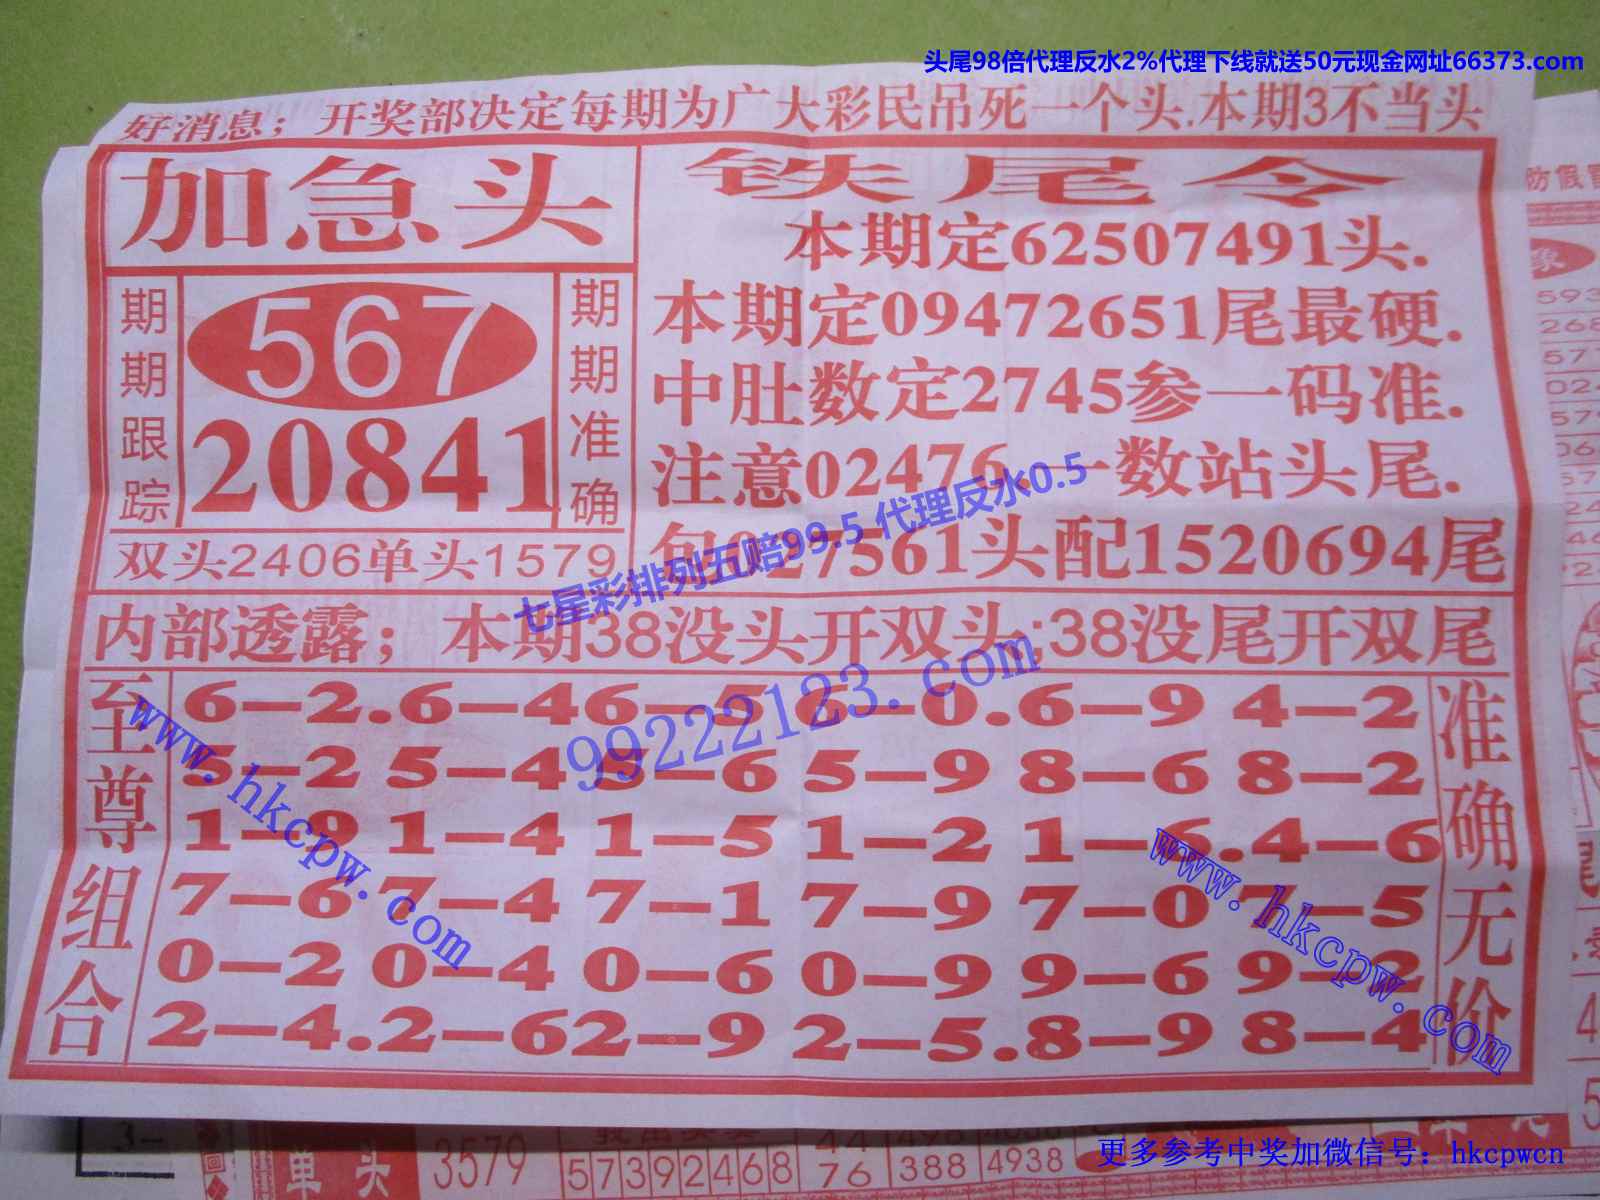 头尾98倍代理反水2%代理下线就送50元现金网址66373.com
好消息；开奖部决定每期为广大彩民吊死一个头.本期3不当头
加急头
期期跟踪
567
20841
期期准确
双头2406单头1579
铁尾令
本期定62507491头.
本期定09472651尾最硬.
中肚数定2745参一码准.
注意02476.一数站头尾.
包027561头配1520694尾
七星彩排列五赔99.5 代理反水0.5
99222123.com
内部透露；本期38没头开双头;38没尾开双尾
至尊组合
6-2.6-46-5 6-0.6-9 4-2
5-2 5-4 5-6 5-9 8-6 8-2
1-9 1-4 1-5 1-2 1-6.4-6
7-6 7-4 7-1 7-9 7-0 7-5
0-2 0-4 0-6 0-9 9-6 9-2
2-4.2-62-9 2-5.8-9 8-4
准确无价
www.hkcpw.com
www.hkcpw.com
防假冒
593
268
57
024
579
06
57
24
02
92
3-
单头
3579
57392468
44
76
498
388
4938
4
5
更多参考中奖加微信号：hkcpwcn